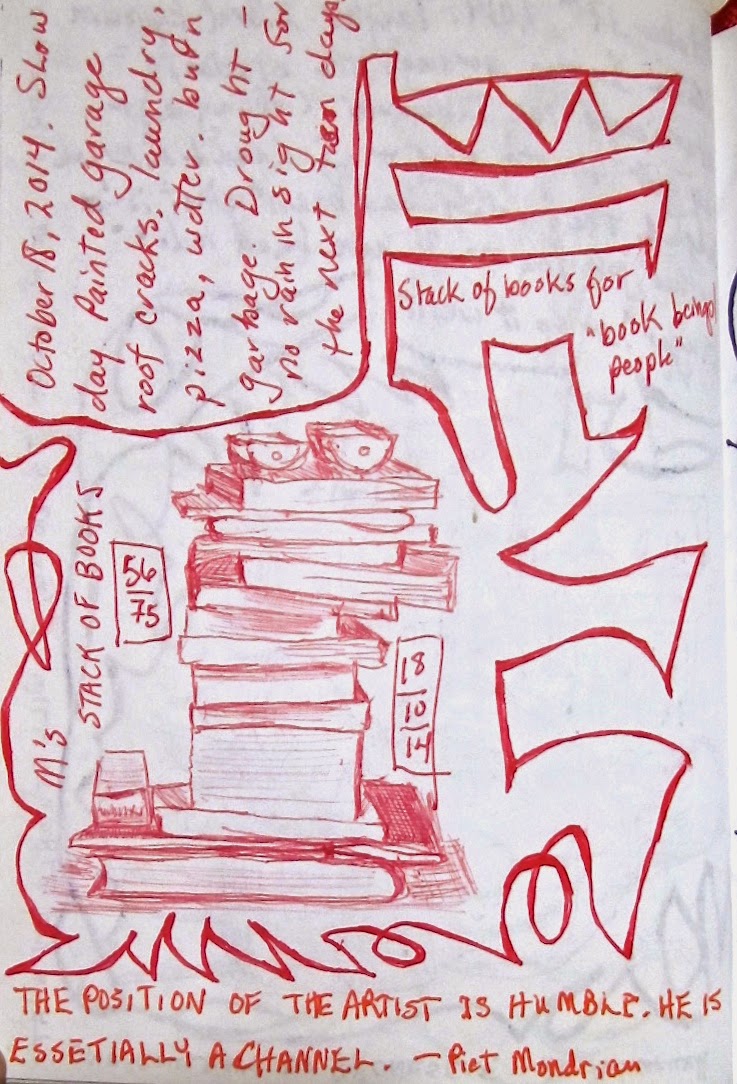 October 18, 2014. Show
day Painted garage
roof cracks, laundry,
pizza, water. burn
garbage. Drought -
no rain in sight for
the next ten days
Stack of books for
"book being
people"
M's STACK OF BOOKS
56
75
18
10
14
THE POSITION OF THE ARTIST IS HUMBLE. HE IS
ESSETIALLY A CHANNEL. - Piet Mondrian